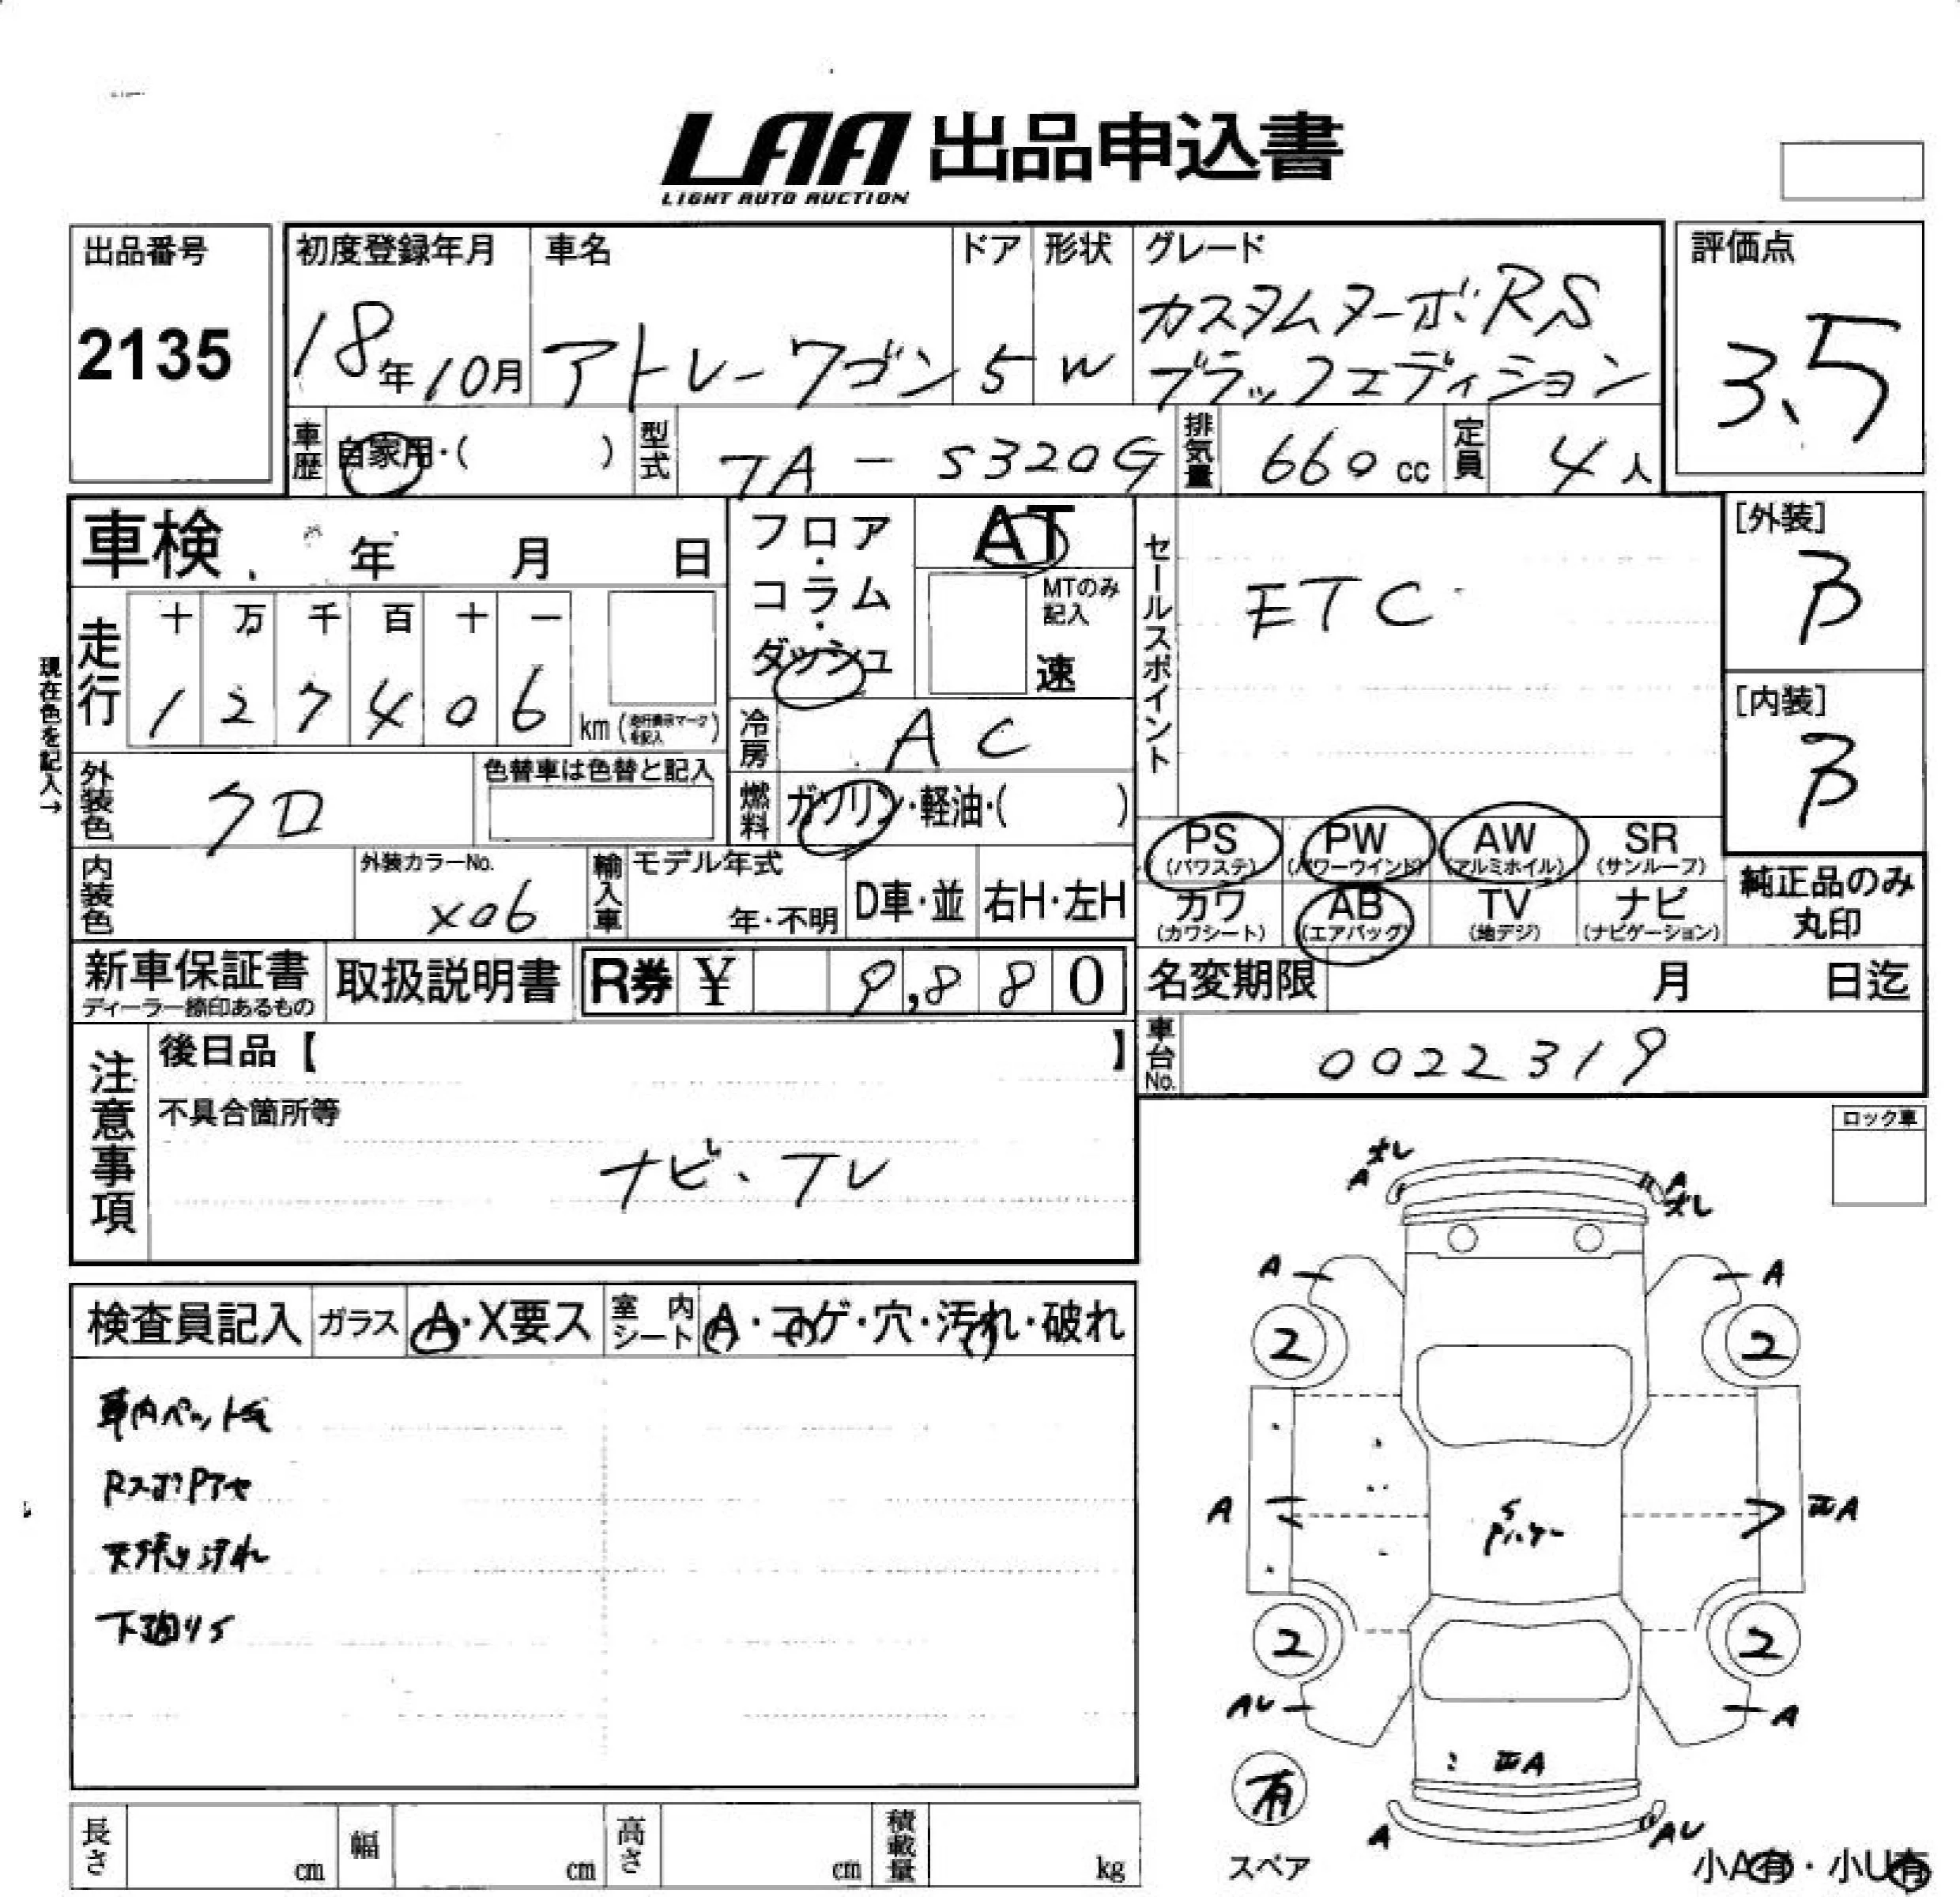 LAA 出品申込書
LIGHT AUTO AUCTION
出品番号
2135
初度登録年月
18年10月
車名
アトレーワゴン
ドア
5
形状
W
グレード
カスタムターボRS
ブラックエディション
評価点
3.5
車歴
自家用・( )
型式
TA-S320G
排気量
660cc
定員
4人
車検 年 月 日
フロア・コラム・ダッシュ
AT
MTのみ記入
速
セールスポイント
ETC
[外装]
B
[内装]
B
現在色を記入→
走行
十 万 千 百 十 一
1 2 7 4 0 6 km
冷房
AC
外装色
クロ
色替車は色替と記入
燃料
ガソリン・軽油・( )
PS (パワステ) PW (パワーウインド) AW (アルミホイル) SR (サンルーフ)
カワ (カワシート) AB (エアバッグ) TV (地デジ) ナビ (ナビゲーション)
純正品のみ丸印
内装色
外装カラーNo.
X06
輸入車
モデル年式
年・不明
D車・並
右H・左H
新車保証書
ディーラー捺印あるもの
取扱説明書
R券 ¥ 9,880
名変期限 月 日迄
車台No.
0022319
注意事項
後日品【 】
不具合箇所等
ナビ、TV
ロック車
検査員記入
ガラス
A・X要ス
室内シート
A・コゲ・穴・汚れ・破れ
天張り汚れ
下廻りS
A
A
A
A
2
2
A
A
2
2
AU
A
A
A
AU
有
スペア
小A有・小U有
長さ cm
幅 cm
高さ cm
積載量 kg